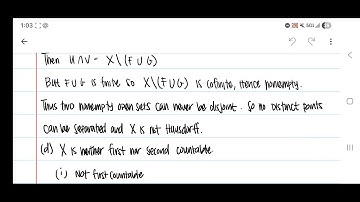 1:03
5G
Then U∩V = X\(F∪G)
But F∪G is finite so X\(F∪G) is cofinite, Hence nonempty.
Thus two nonempty open sets can never be disjoint. So no distinct points
can be separated and X is not Hausdorff.
(d) X is neither first nor second countable.
(i) Not first countable